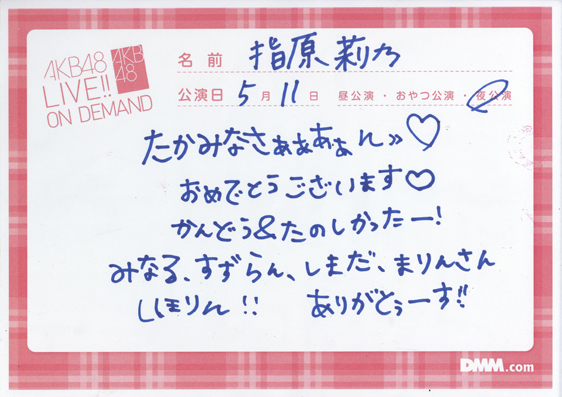 AKB48
LIVE!!
ON DEMAND
AKB
48
名前 指原莉乃
公演日 5月11日 昼公演・おやつ公演・夜公演
たかみなさぁぁあぁん》♡
おめでとうございます♡
かんどう&たのしかったー!
みなる、すずらん、しまだ、まりんさん
しほりん!! ありがとぅーす!!
DMM.com